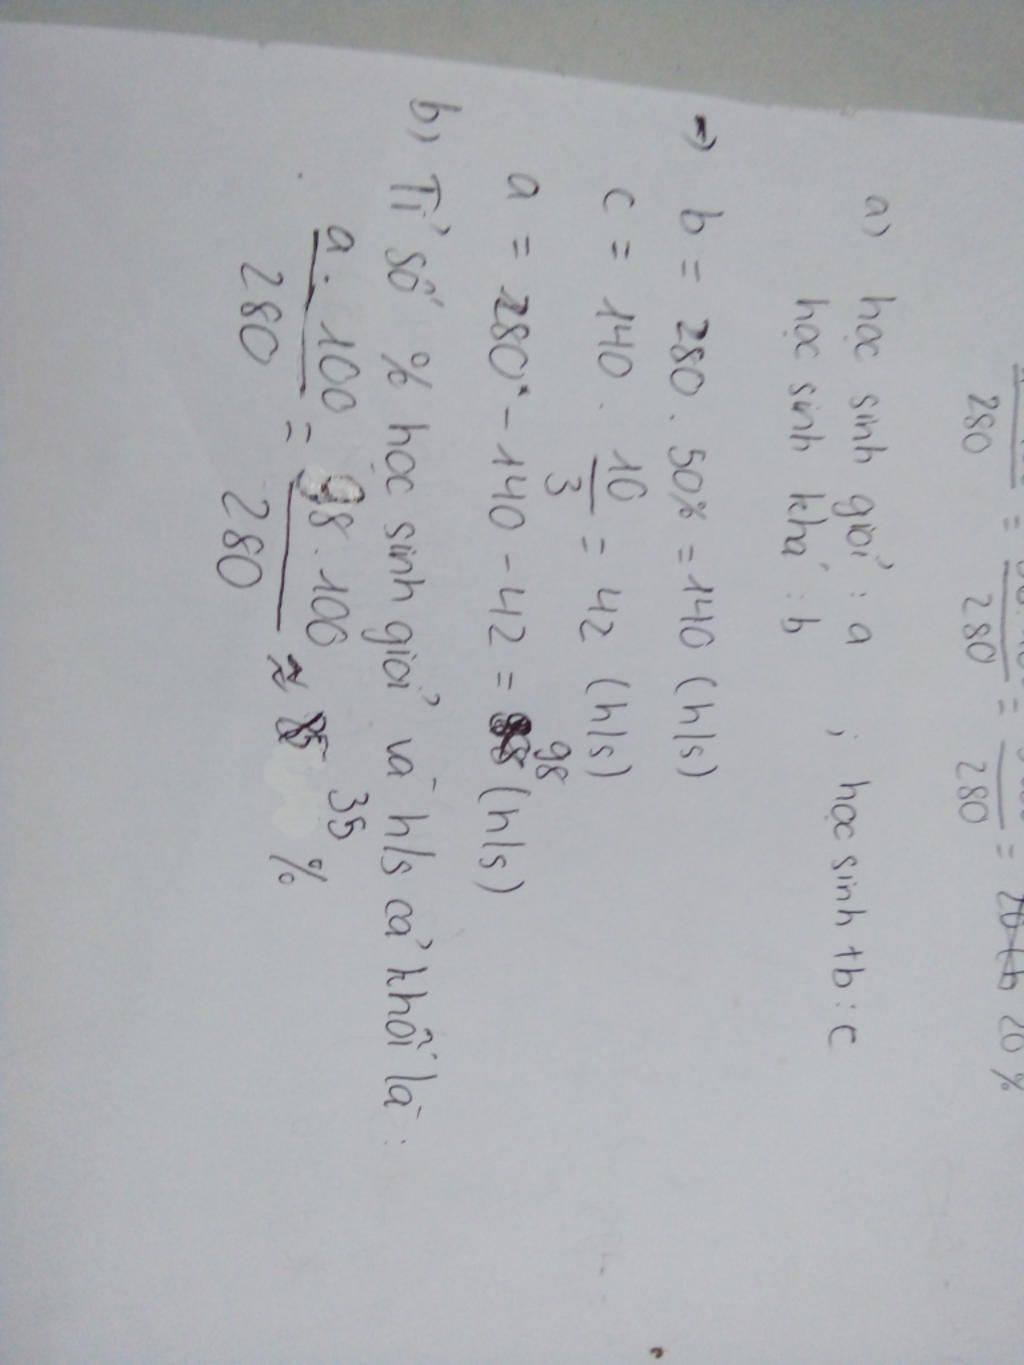 280 = 280 = 280 = 20 %
a) học sinh giỏi : a ; học sinh tb : c
học sinh khá : b
→ b = 280 . 50% = 140 (h/s)
c = 140 . 10/3 = 42 (h/s)
a = 280 - 140 - 42 = 98 (h/s)
b, Tỉ số % học sinh giỏi và h/s cả khối là :
a . 100 / 280 = 98 . 100 / 280 ≈ 35 %